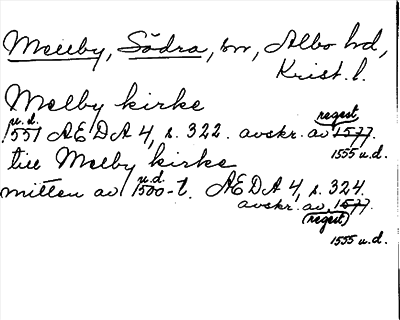 Mellby, Södra, sn, Albo hd,
Krist. l.
Melby kirke
u.d. regest
1551 AEDA 4, s. 322. avskr. av 1577.
1555 u.d.
till Melby kirke
u.d.
mitten av 1500-t. AEDA 4, s. 324.
avskr. av 1577.
(regest)
1555 u.d.